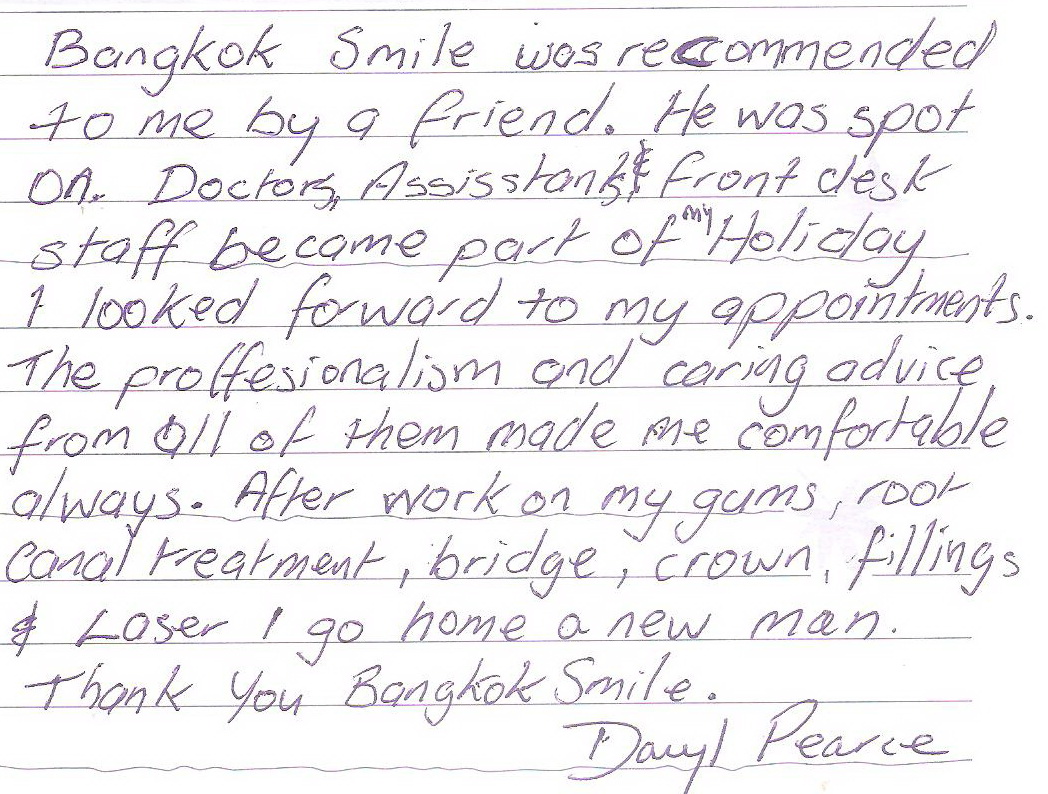 Bangkok Smile was reccommended
to me by a friend. He was spot
on. Doctors, Assisstants & front desk
staff became part of my Holiday
I looked forward to my appointments.
The proffesionalism and caring advice
from all of them made me comfortable
always. After work on my gums, root
canal treatment, bridge, crown, fillings
& Laser I go home a new man.
Thank You Bangkok Smile.
Daryl Pearce